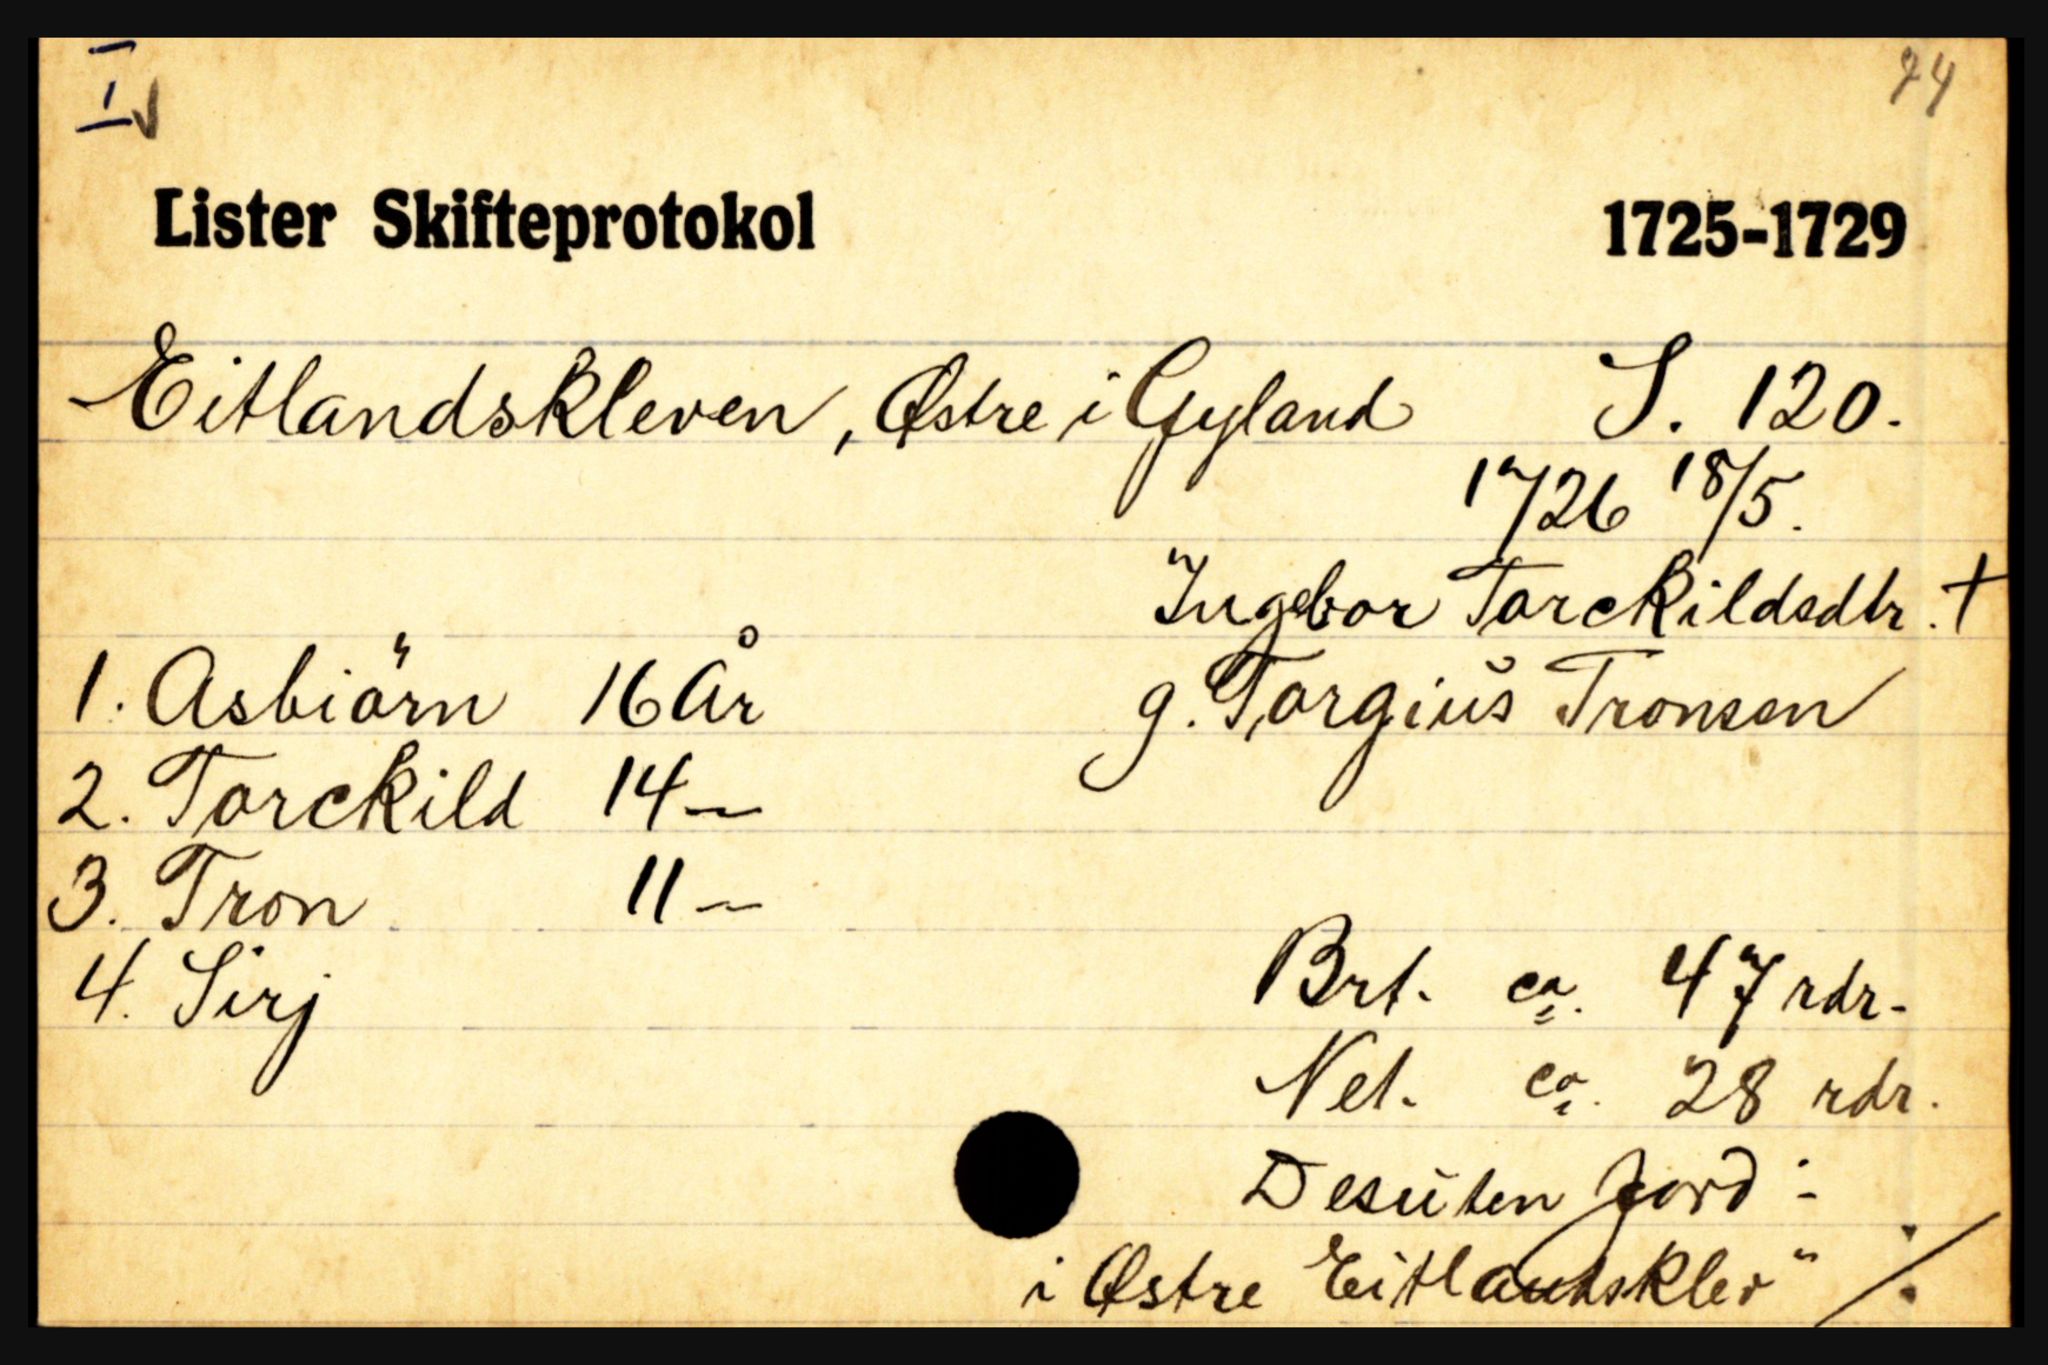 I 74
Lister Skifteprotokol 1725-1729
Eitlandskleven, Østre i Gyland S. 120.
1726 18/5.
Ingebor Torckildsdtr. †
1. Asbiörn 16 År g. Torgius Tronsen
2. Torckild 14 —
3. Tron 11 —
4. Sirj Brt. ca. 47 rdr.
Net. ca. 28 rdr.
Desuten Jord:
i Østre Eitlandsklev" ./.